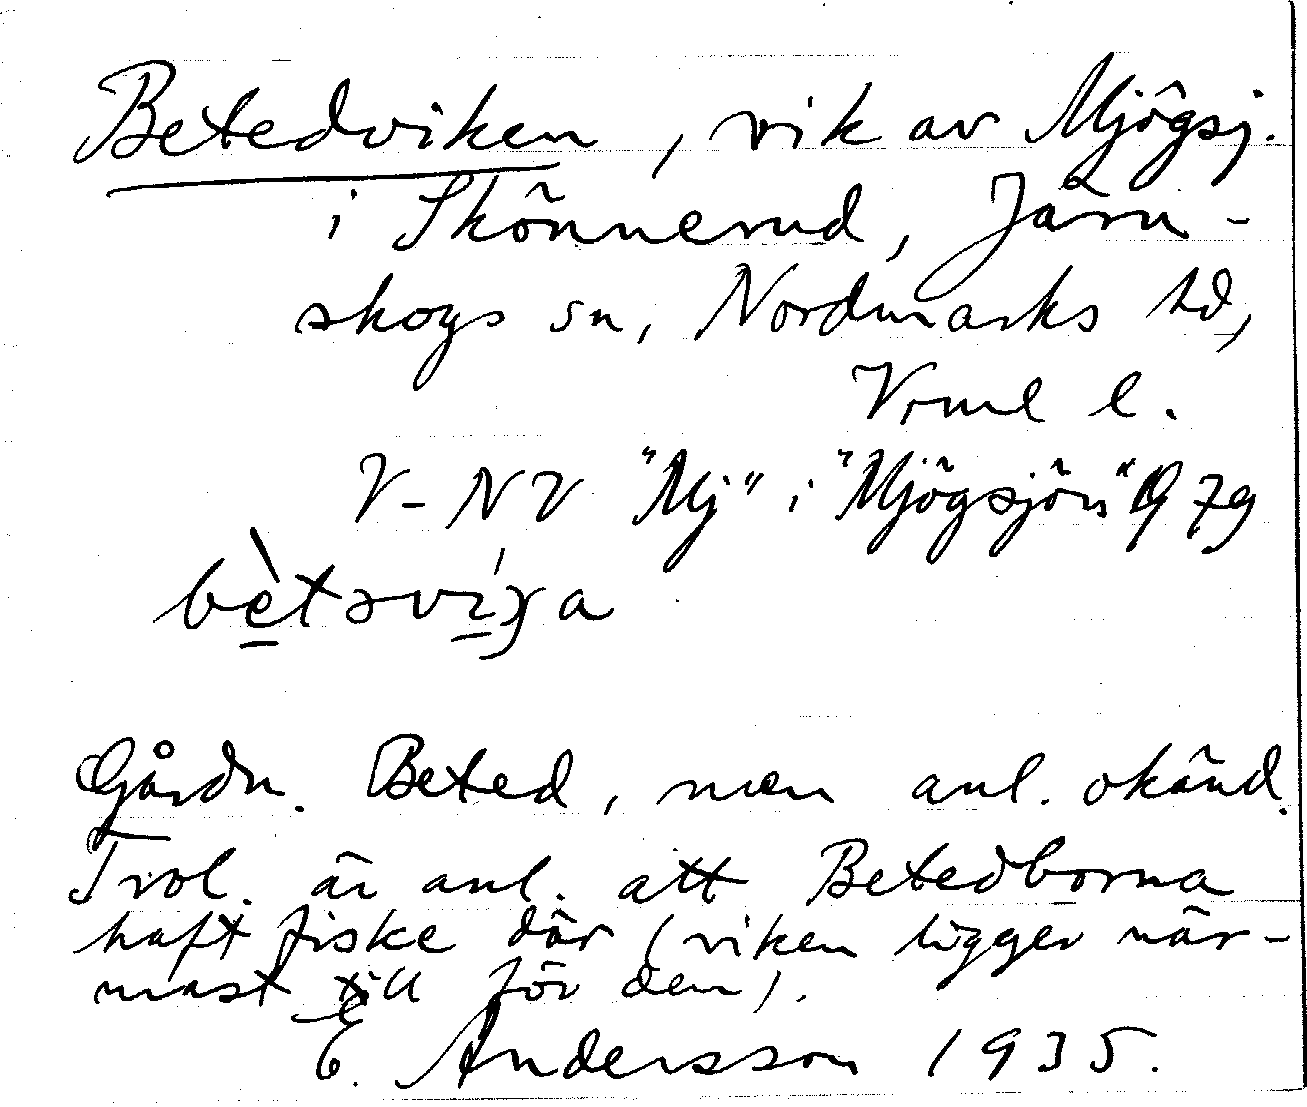 Betedviken, vik av Mjögsj.
i Skönnerud, Järn-
skogs sn, Nordmarks hd,
Vrml l.
V-NV "Mj" i "Mjögsjön" 979
Gårdn. Beted, men anl. okänd.
Trol. är anl. att Betedborna
haft fiske där (viken ligger när-
mast till för dem).
E. Andersson 1935.